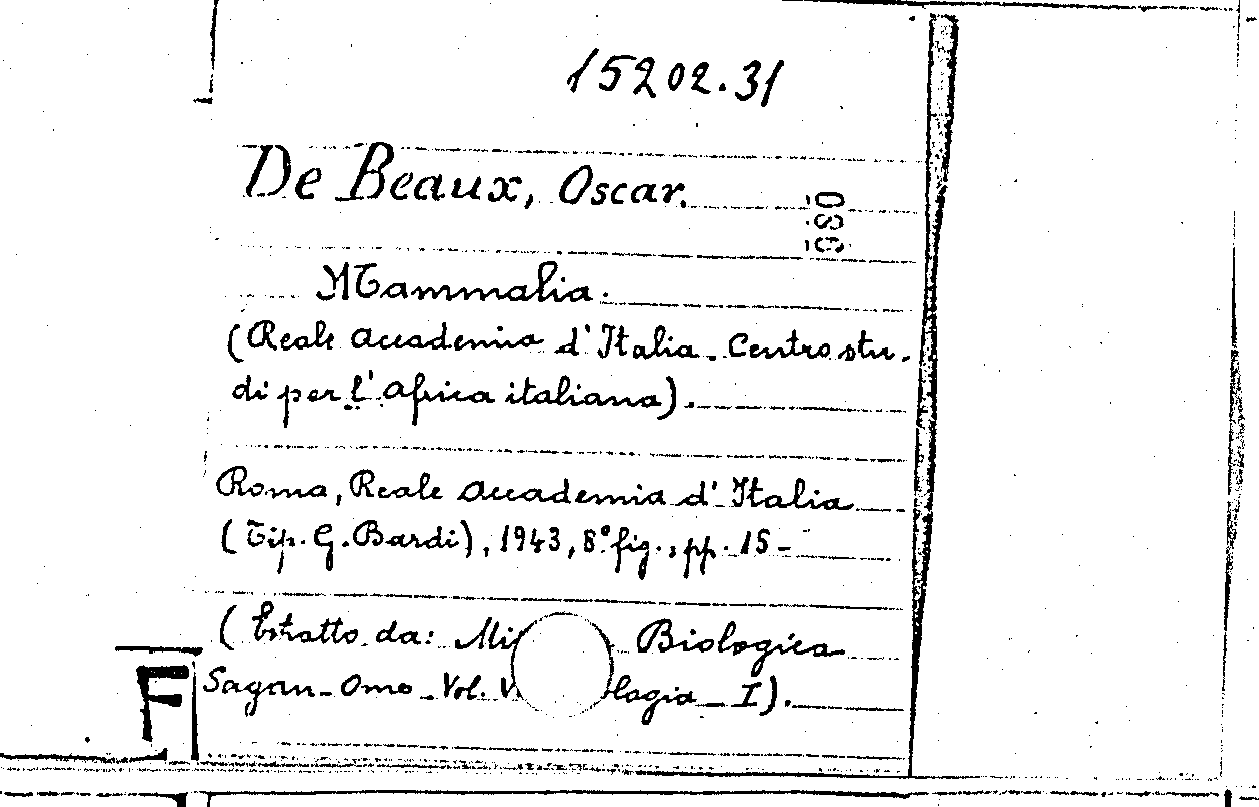 15202.31
De Beaux, Oscar.
Mammalia.
(Reale Accademia d'Italia. Centro stu-
di per l'Africa italiana).
Roma, Reale Accademia d'Italia
(Tip. G. Bardi), 1943, 8° fig., pp. 15-
(Estratto da: Mi Biologica
Sagan-Omo-Vol. V logia - I).
F